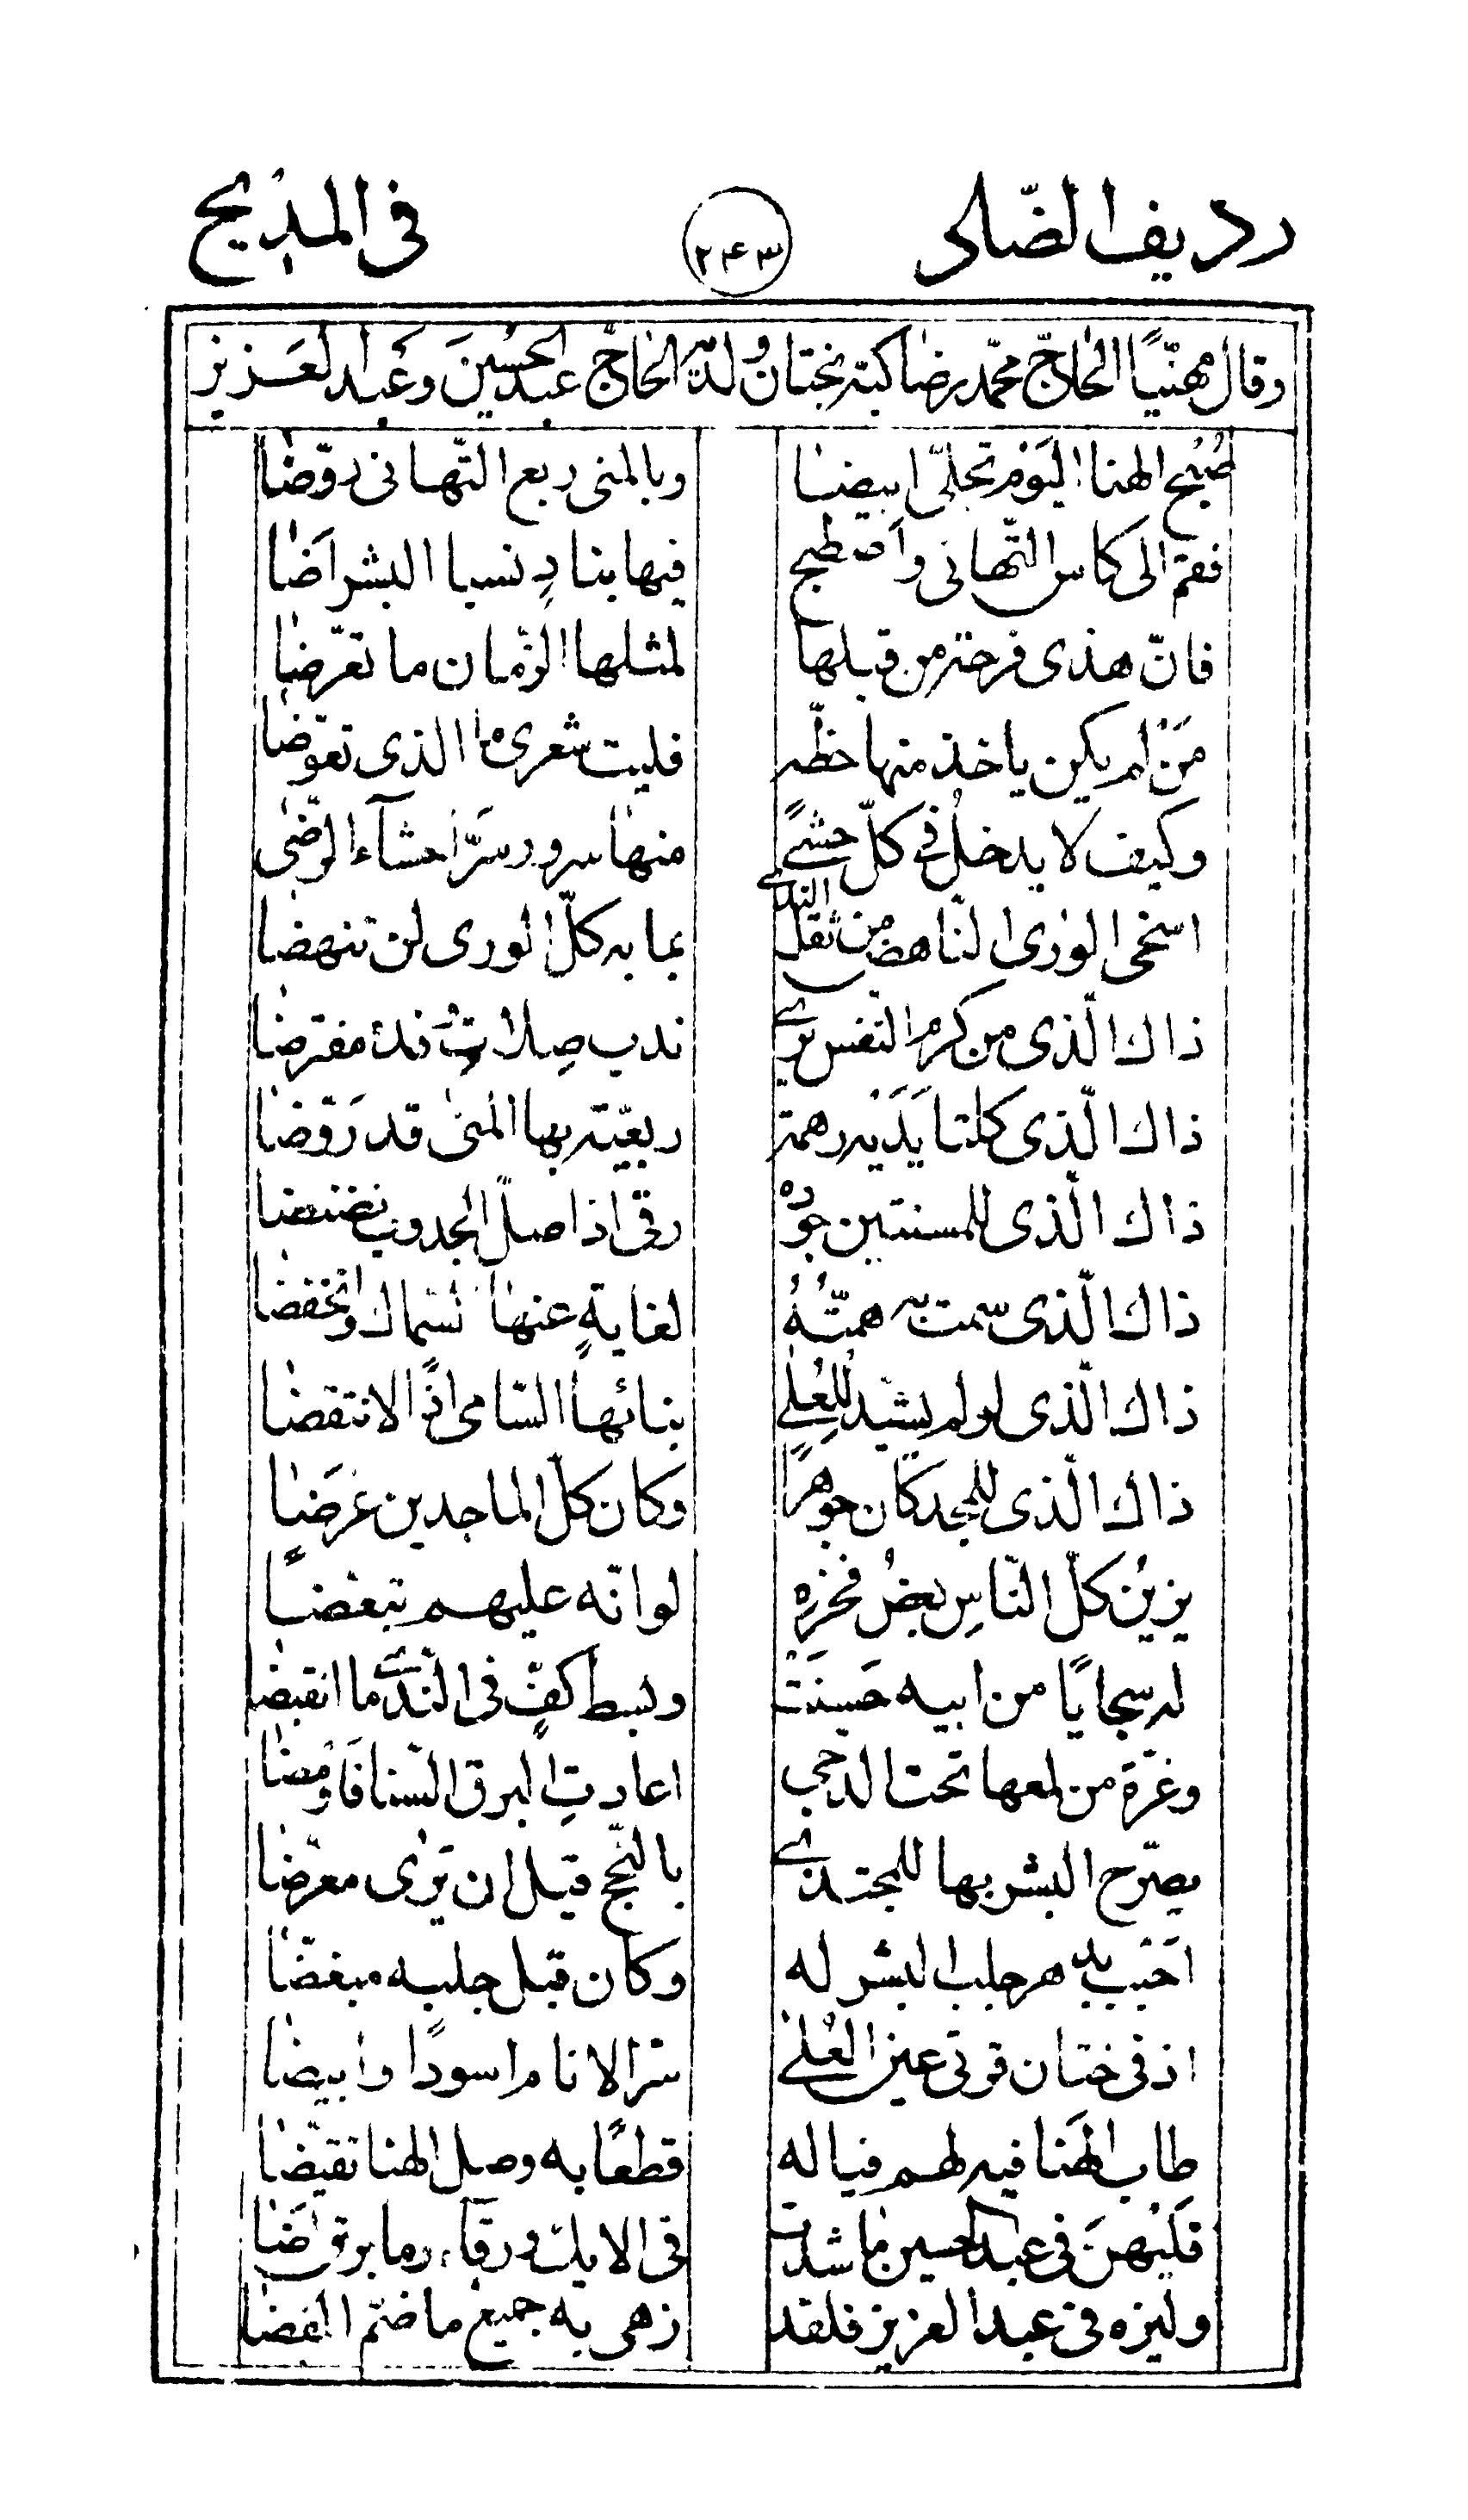 رديف الضاد ٢٤٣ فى المديح
وقال مهنّيًا الحاجّ محمّد رضا كبّه بختان ولديه الحاجّ عبد الحسين وعبد العزيز
صُبح الهنا اليَوْم تجلّى ابيضا وبالمنى ربع التّهانى روّضا
فقم الى كاس التّهانى واصطبح فيها بنادٍ نسبا البشر اَضا
فانّ هذى فرحة من قبلها لمثلها الزّمان ما تعرّضا
مَنْ لم يكن ياخذ منها حظّه فليت شعرى ما الذى تعوّضا
وكيف لا يدخلُ فى كلّ حشىً منها سرور سَرَّ احشآء الرّضى
اسخى الورى النّاهض من ثقل الندى بما به كلّ الورى لن تنهضا
ذاك الّذى من كرم النّفس يرى ندب صِلاتِ وُفده مفترضا
ذاك الّذى كلتا يَدَيْه رهمة ربعيّة بها المنى قد رَوّضا
ذاك الّذى للمسنتين جوده رقى اذا صلّ الجدوب نضنضا
ذاك الّذى سمت به همّتُهُ لغايةٍ عنها السّماك انخفضا
ذاك الّذى لو لم يشيّد للعُلى بنائها السّامى اذًا لانتقضا
ذاك الّذى للمجد كان جوهرًا وكان كلّ الماجدين عَرَضَا
يزينُ كلّ النّاسِ بعضُ فخرِهِ لو انّه عليهم تبعّضا
له سجايًا من ابيه حَسنَتْ وبسط كفٍّ فى النّدى ما انقبضا
وغرّة من لمعها تحت الدجى اعادتِ البرق السّنا فاَومْضا
يصرّح البشر بها للمجتدى بالنّجح قبل ان يُرى معرّضا
احبَبْ به دهر جلب البشر له وكان قبل جلبه مبغّضا
اذ فى ختان قرتى عين العُلى سرّ الانام اسودًا وابيضا
طاب الهَنا فيه لهم فيا له قطعًا به وصل الهنا تقيّضا
فَليُهنَ فى عبد الحسين ما شدت فى الايك ورقآء وما برق اَضا
وليزه فى عبد العزيز فلقد زهى به جميع ما ضمّ الفضا